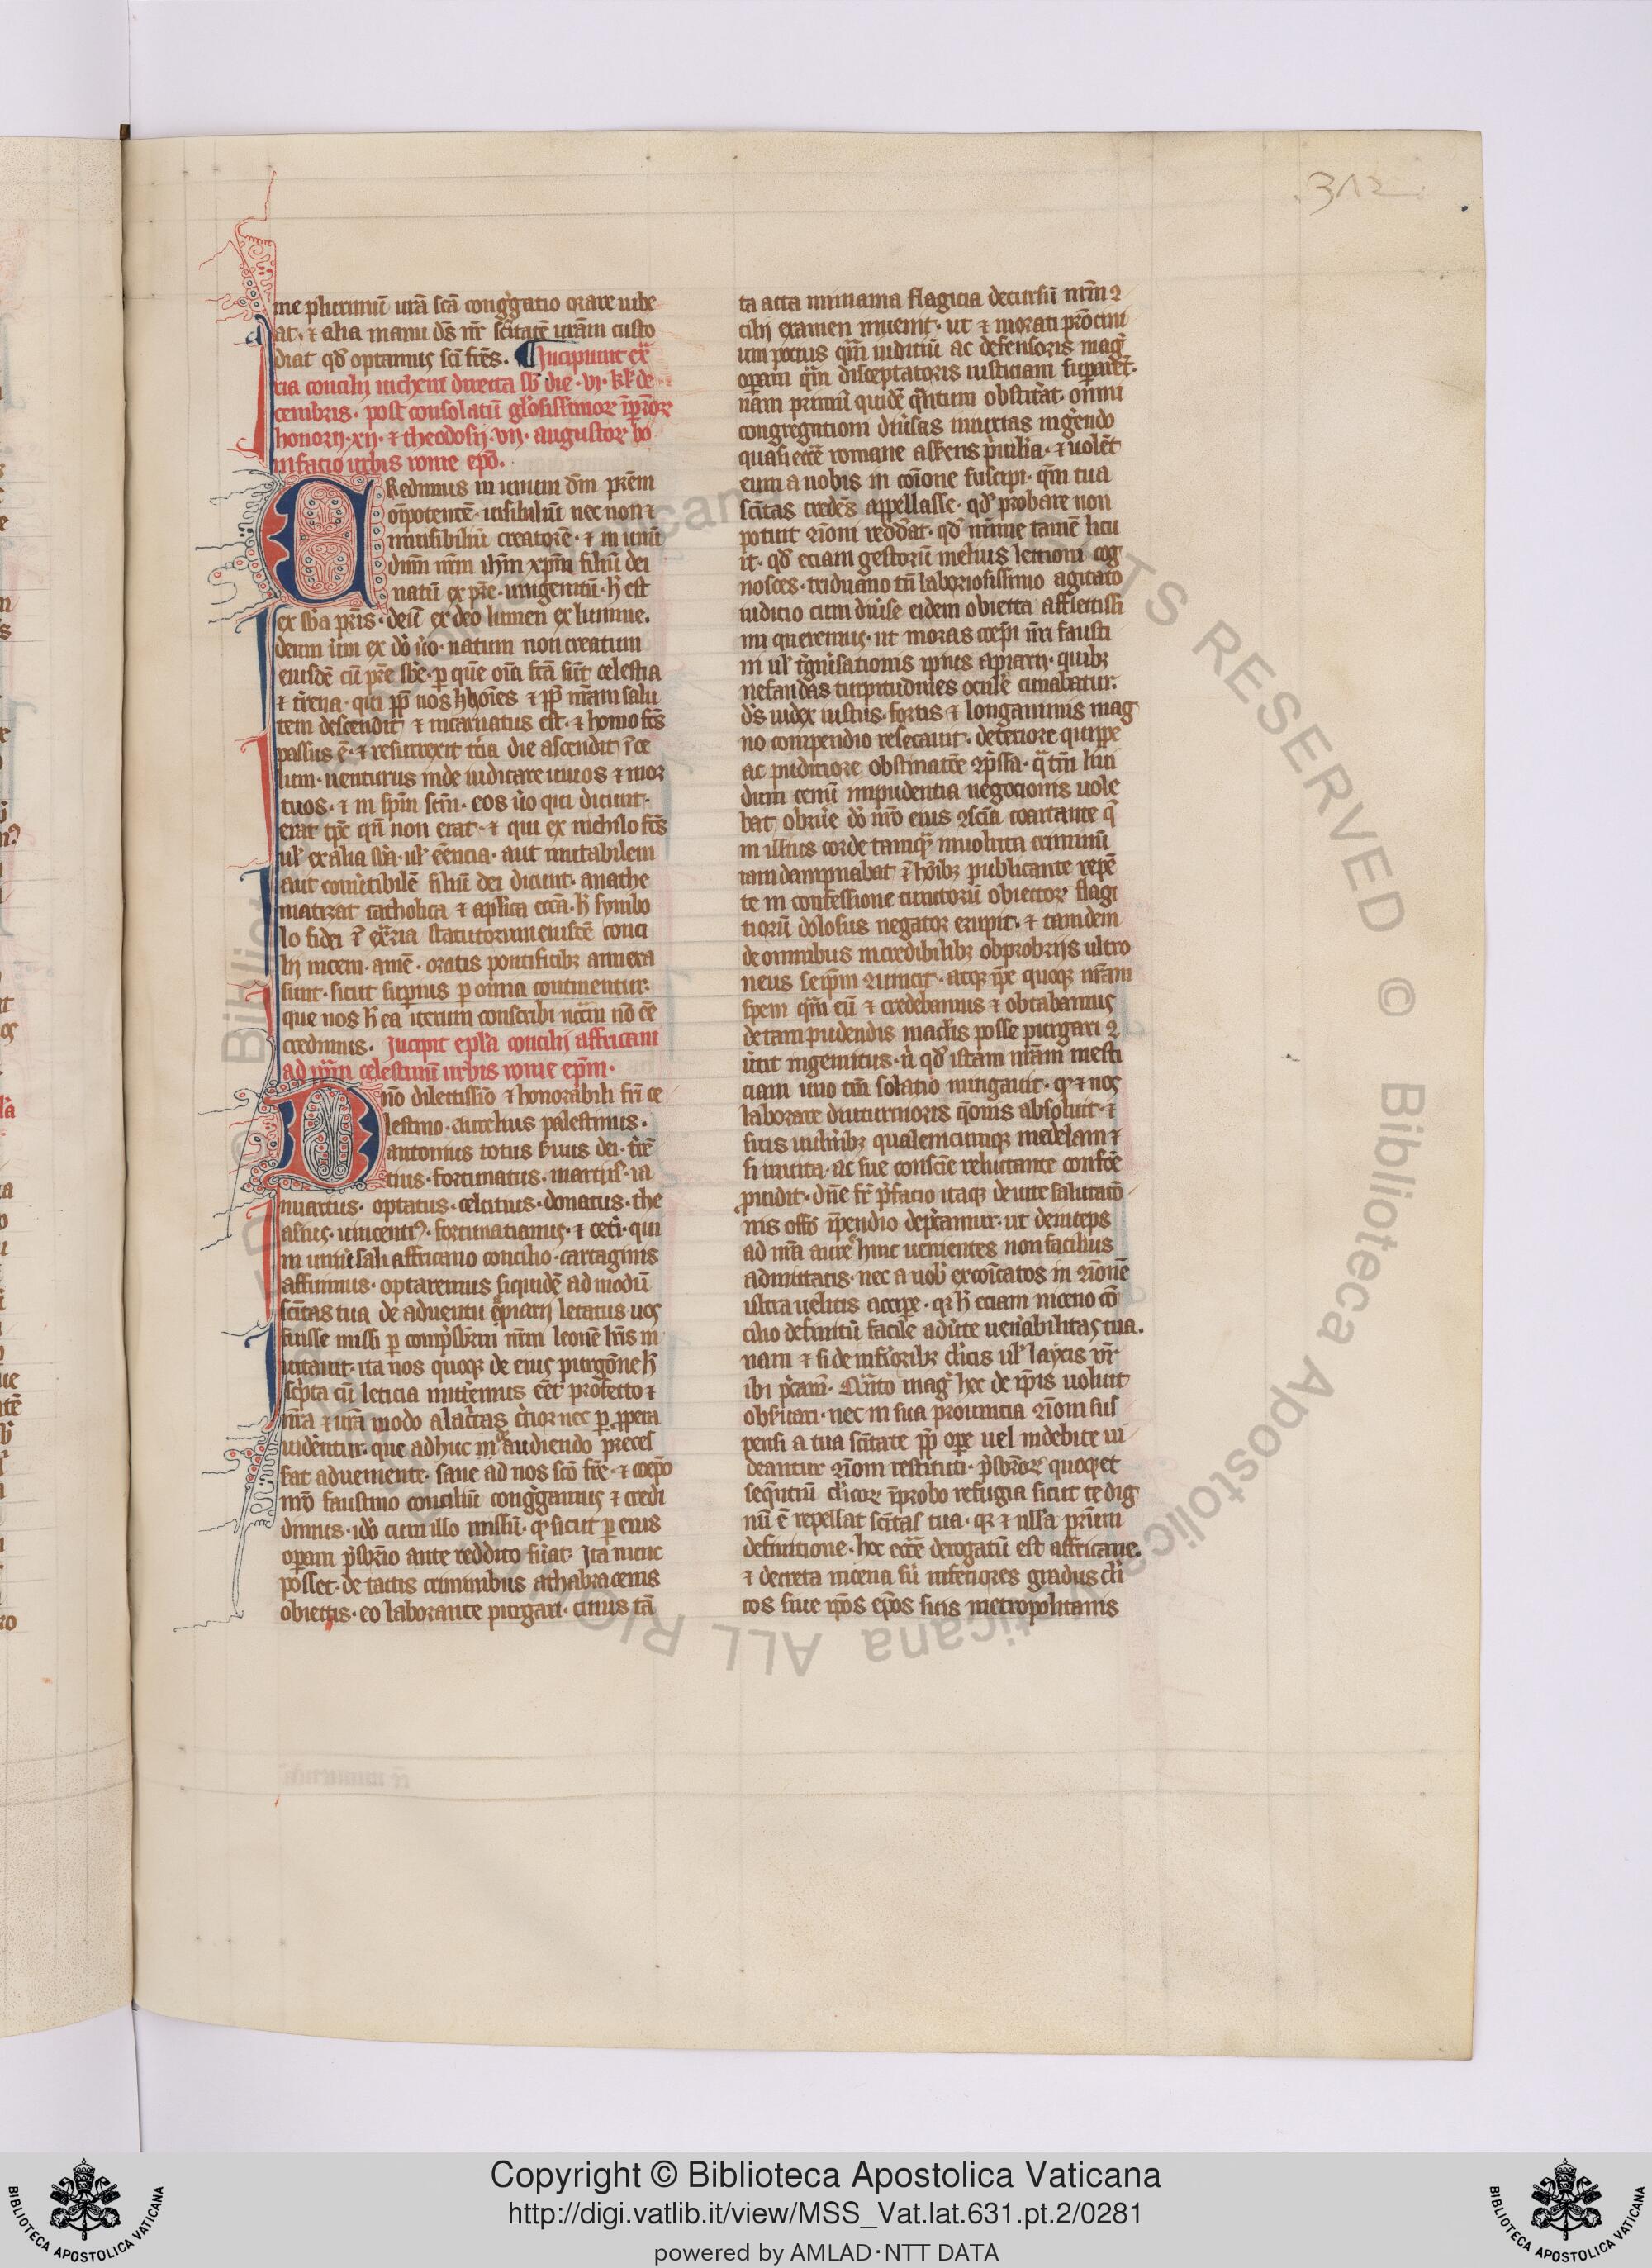 312
me plurimū urā scā congregatio orare iube
at, ⁊ alia manu dš nr̄ sc̄itatē urām custo
diat qd̄ optamus sc̄i fr̄es. Incipiunt ex̄
ria concilij nicheni directa sb̄ die · vi · kl̓ de
cembris · post consolatū gl̓osissimoꝝ īpr̄oꝝ
honorij · xij · ⁊ theodosij · vij · augustoꝝ bo
nifacio urbis rome ep̄o.
Credimus in unum dm̄ pr̄em
oīpotentē · uisibiliū nec non ⁊
inuisibiliū creatorē · ⁊ in unū
dnm̄ nrm̄ ihm̄ xp̄m filiū dei
natū ex pr̄e · unigenitū · h̓ est
ex sb̄a pr̄is · deū ex deo lumen ex lumine.
deum u̓m ex do̓ u̓o · natum non creatum
eiusdē cū pr̄e sb̄e · ꝑ quē oīa fc̄a sūt celestia
⁊ t̓rena · qui ꝓp̄ nos hoīes ⁊ ꝓp̄ nr̄am salu
tem descendit ⁊ incarnatus est · ⁊ homo fc̄s
passus ē · ⁊ resurrexit tc̓ia die ascendit ī ce
lum · uenturus inde iudicare uiuos ⁊ mor
tuos · ⁊ in sp̄m sc̄m · eos u̓o qui dicunt ·
erat tp̄c qn̄ non erat · ⁊ qui ex nichilo fc̄s
ul̓ ex alia sb̄a · ul̓ eēncia · aut mutabilem
aut conu̓tibilē filiū dei dicunt · anathe
matizat catholica ⁊ apl̓ica ecc̄a · h̓ symbo
lo fidei ⁊ exēria statutorum eiusdē conci
lij nicem · amē · oratis pontificibꝫ annexa
sunt · sicut superius ꝑ omnia continentur.
que nos h̓ ea iterum conscribi nccm̄ nō eē
credimus. Incipit epl̓a concilij affricani
ad ppm̄ celestinū urbis rome ep̄m ·
Dn̄o dilectissio ⁊ honorabili frī ce
lestino · aurelius palestinus.
antonius totus s̓uus dei · t̓rē
tius · fortunatus · martin̓ · ia
nuarius · optatus · celtitius · donatus · the
asius · uincentꝰ · fortunatianus · ⁊ cet̓i · qui
in uniu̓sali affricano concilio · cartaginis
affuimus · optaremus siquidē ad modū
sc̄itas tua de aduentu apiarij letatus uos
fuisse missi ꝑ comp̓sbrm̄ nrm̄ leonē lr̄is in
uitauit · ita nos quoqꝫ de eius purgōne h̓
sc̓pta cū leticia mitt̓emus eēt profecto ⁊
nr̄a ⁊ urā modo alac̓tas c̓tior nec ꝑ ꝓpera
uidētur · que adhuc in audiendo preces
sat aduemente · sane ad nos sc̄o fr̄e · ⁊ coep̄o
nrō faustino conciliū cong̓gauimus ⁊ credi
dimus · ido̓ cum illo missū · qꝫ sicut ꝑ eius
oꝑam p̓sbrīo ante reddito fu̓at: Ita nunc
posset · de tactis criminibus athabracenis
obiectis · eo laborante purgari · cuius tā
ta acta ininania flagicia decursū nrm̄ ꝯ
cilij examen inuenit · ut ⁊ morati pr̄ocini
um pocius qm̄ iudiciū ac defensoris mag̓
oꝑam qm̄ disceptatoris iusticiam suꝑaret ·
nam primū quidē q̓ntum obstit̓at · omni
congregationi diu̓sas iniurias ing̓endo
quasi ecc̄e romane asserens p̓uilia · ⁊ uolēt
eum a nobis in coīone suscipi · qm̄ tua
sc̄itas credēs appellasse · qd̄ probare non
potuit ꝯioni reddat · qd̄ minime tamē licu
it · qd̄ eciam gestorū melius lectioni cog
nosces · triduano tn̄ laboriosissimo agitato
iudicio cum diu̓se eidem obiecta afflictissi
mi queremus · ut moras coep̄i nr̄i fausti
ni ul̓ tg̓iu̓sationis ipius apiarij · quibꝫ
nefandas turpitudines oculē cunabatur.
dš iudex iustus · fortis ⁊ longanimis mag
no compendio resecauit · deteriore quippe
ac pudiciore obstinatōe ꝯp̓ssa · q̓ tm̄ liui
dum cenū impudentia negocionis uole
bat obruē do̓ nrō eius ꝯsc̄ia coartante q̓
in illius corde tamqꝫ inuoluta criminū
iam dampnabat ī hoībꝫ publicante repē
te in confessione cunctorū obiectoꝝ flagi
tiorū dolosus negator erupit · ⁊ tandem
de omnibus incredibilibꝫ obprobrijs ultro
neus seip̄m ꝯuincit · atqꝫ ip̄e quoqꝫ nr̄am
spem qm̄ eū ⁊ credebamus ⁊ obtabamus
de tam pudendis maclis posse purgari ꝯ
u̓tit ingemitus · n̓ qd̄ istam nr̄am mesti
ciam uno tm̄ solatio mitigauit · qꝫ ⁊ nos
laborare diuturnioris q̄onis absoluit · ⁊
suis uuln̓ibꝫ qualemcumqꝫ medelam ⁊
si inuita · ac sue consciē reluctante confōe
ꝓuidit · dn̄e fr̄ p̓facio itaqꝫ deuite salutatō
nis offo īpendio dep̓camur · ut deinceps
ad nr̄a aure hinc uenientes non facilius
admittatis · nec a nob̓ excoīcatos in ꝯionē
ultra uelitis acciꝑe · qꝫ h̓ eciam niceno cō
cilio definitū facile adu̓te uen̓abilitas tua.
nam ⁊ si de inf̓ioribꝫ cl̓icis ul̓ laycis vr̄
ibi p̓cau̓i · Qn̄to mag̓ hec de ip̄is uoluit
obseruari · nec in sua prouincia ꝯionī sus
pensi a tua sc̄itate ꝓp̄ oꝑe uel indebite ui
deantur ꝯionī restituti · p̓sbr̄oꝝ quoqꝫ et
seq̄ntiū cl̓icoꝝ īprobo refugia sicut te dig
nū ē repellat sc̄itas tua · qꝫ ⁊ ulla prīum
definitione · hoc ecc̄e derogatū est affricane.
⁊ decreta nicena sī inferiores gradus cl̓i
cos siue ip̄os ep̄os suis metropolitanis
© Biblioteca Apostolica Vaticana ALL RIGHTS RESERVED
BIBLIOTECA APOSTOLICA VATICANA
Copyright © Biblioteca Apostolica Vaticana
http://digi.vatlib.it/view/MSS_Vat.lat.631.pt.2/0281
powered by AMLAD·NTT DATA
BIBLIOTECA APOSTOLICA VATICANA